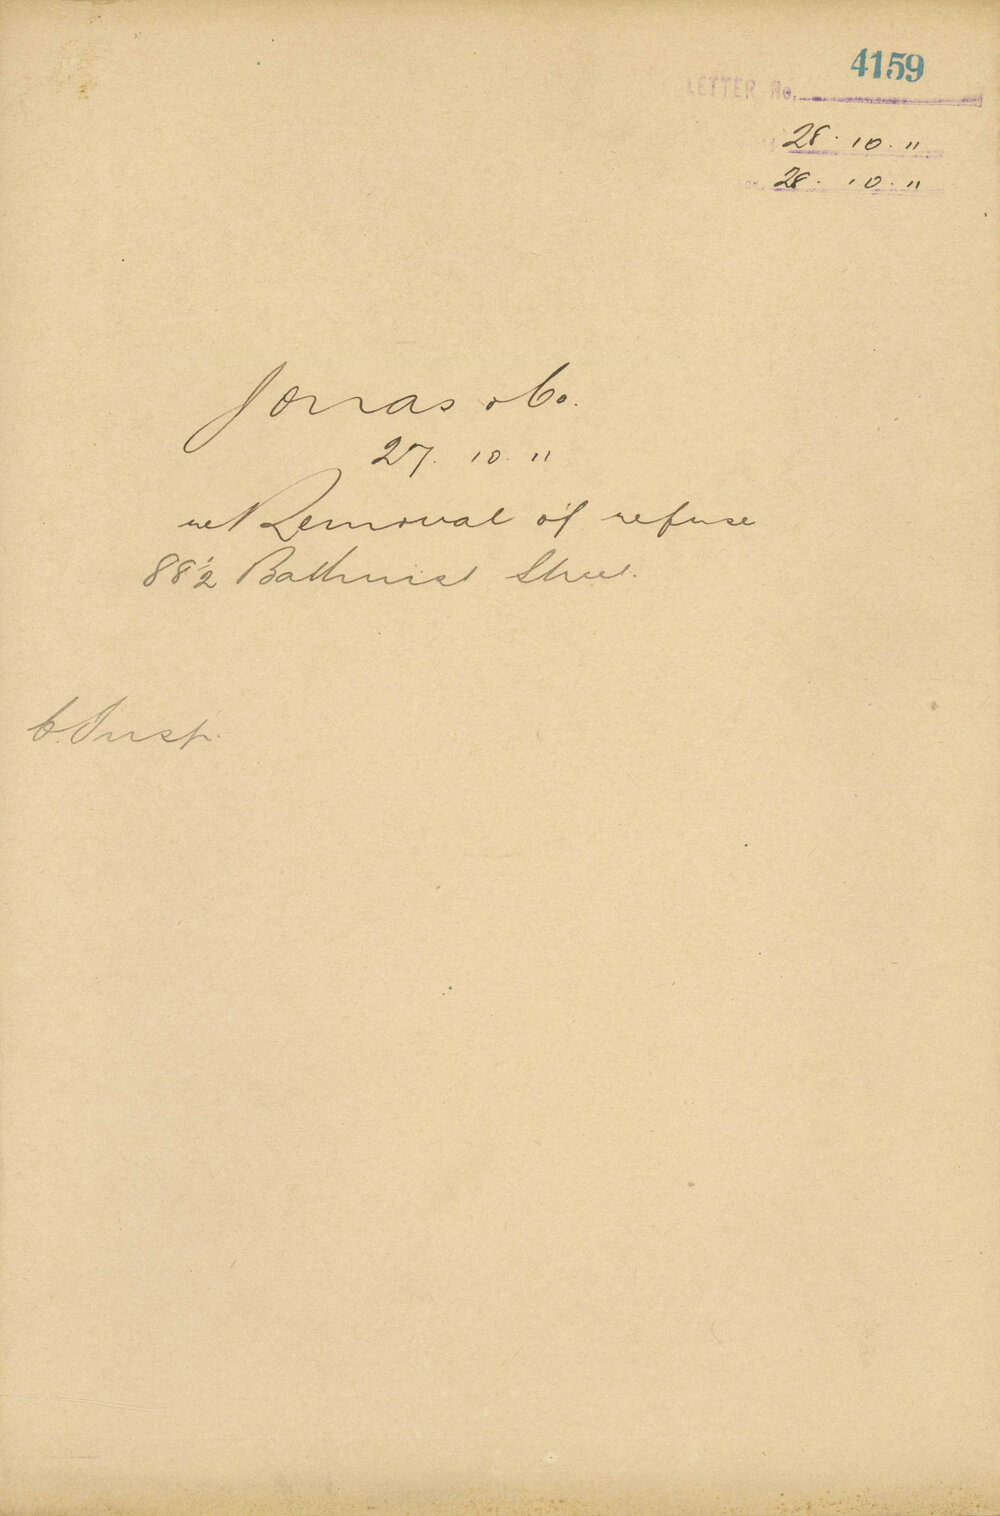 4159
LETTER No.
28. 10. 11
28. 10. 11
Jonas & Co.
27. 10. 11
re Removal of refuse
88½ Bathurst Street.
C. Insp.